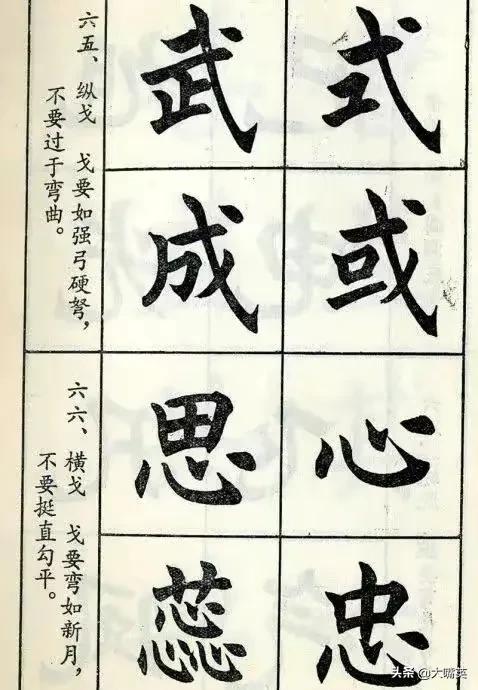 式或
武成
六五、纵戈 戈要如强弓硬弩，
不要过于弯曲。
心忠
思蕊
六六、横戈 戈要弯如新月，
不要挺直勾平。
头条 @大嘴英